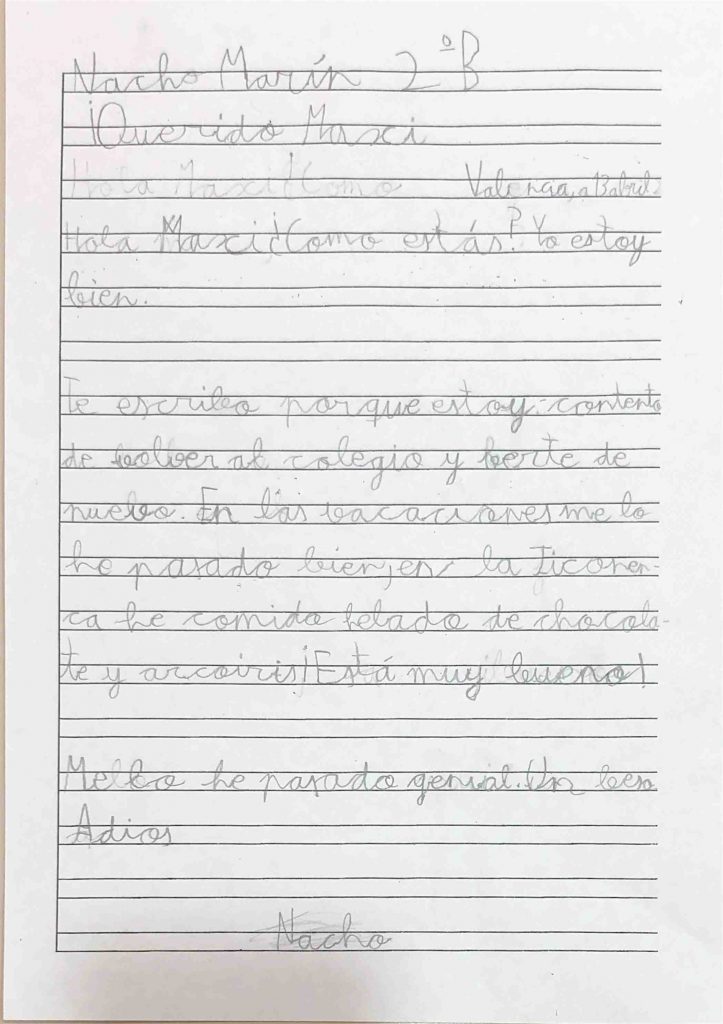 Nacho Marín 2ºB
¡Querido Maxi
Hola Maxi¿Como
Valencia, a 13 abril.
Hola Maxi¿Como estás? Yo estoy
bien.
Te escribo porque estoy contento
de bolber al colegio y berte de
nuebo. En las bacaciones me lo
he pasado bien, en la Jiconen-
ca he comido helado de chocola-
te y arcoiris¡Está muy bueno!
Me lo he pasado genial. Un beso
Adios
Nacho